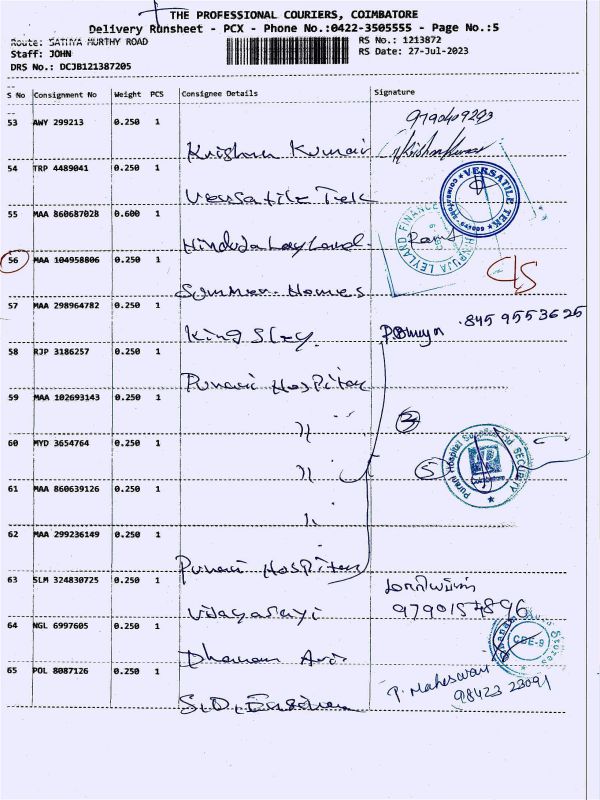 THE PROFESSIONAL COURIERS, COIMBATORE
Delivery Runsheet - PCX - Phone No.:0422-3505555 - Page No.:5
Route: SATHYA MURTHY ROAD
RS No.: 1213872
Staff: JOHN
RS Date: 27-Jul-2023
DRS No.: DCJB121387205
S No Consignment No Weight PCS Consignee Details Signature
53 AWY 299213 0.250 1
9790409293
Krishna Kumar
54 TRP 4489041 0.250 1
Versatile Tek
VERSATILE TEK
55 MAA 860687028 0.600 1
Hinduja Leyland
HINDUJA LEYLAND FINANCE
56 MAA 104958806 0.250 1
Summer Homes
57 MAA 298964782 0.250 1
King Sley
845 9553625
58 RJP 3186257 0.250 1
Purani Hospital
59 MAA 102693143 0.250 1
"
60 MYD 3654764 0.250 1
"
5
Purani Hospital SECURITY
Coimbatore
61 MAA 860639126 0.250 1
"
62 MAA 299236149 0.250 1
Purani Hospital
63 SLM 324830725 0.250 1
9790157896
64 NGL 6997605 0.250 1
CBE-9
65 POL 8087126 0.250 1
P. Maheswari
98423 23091